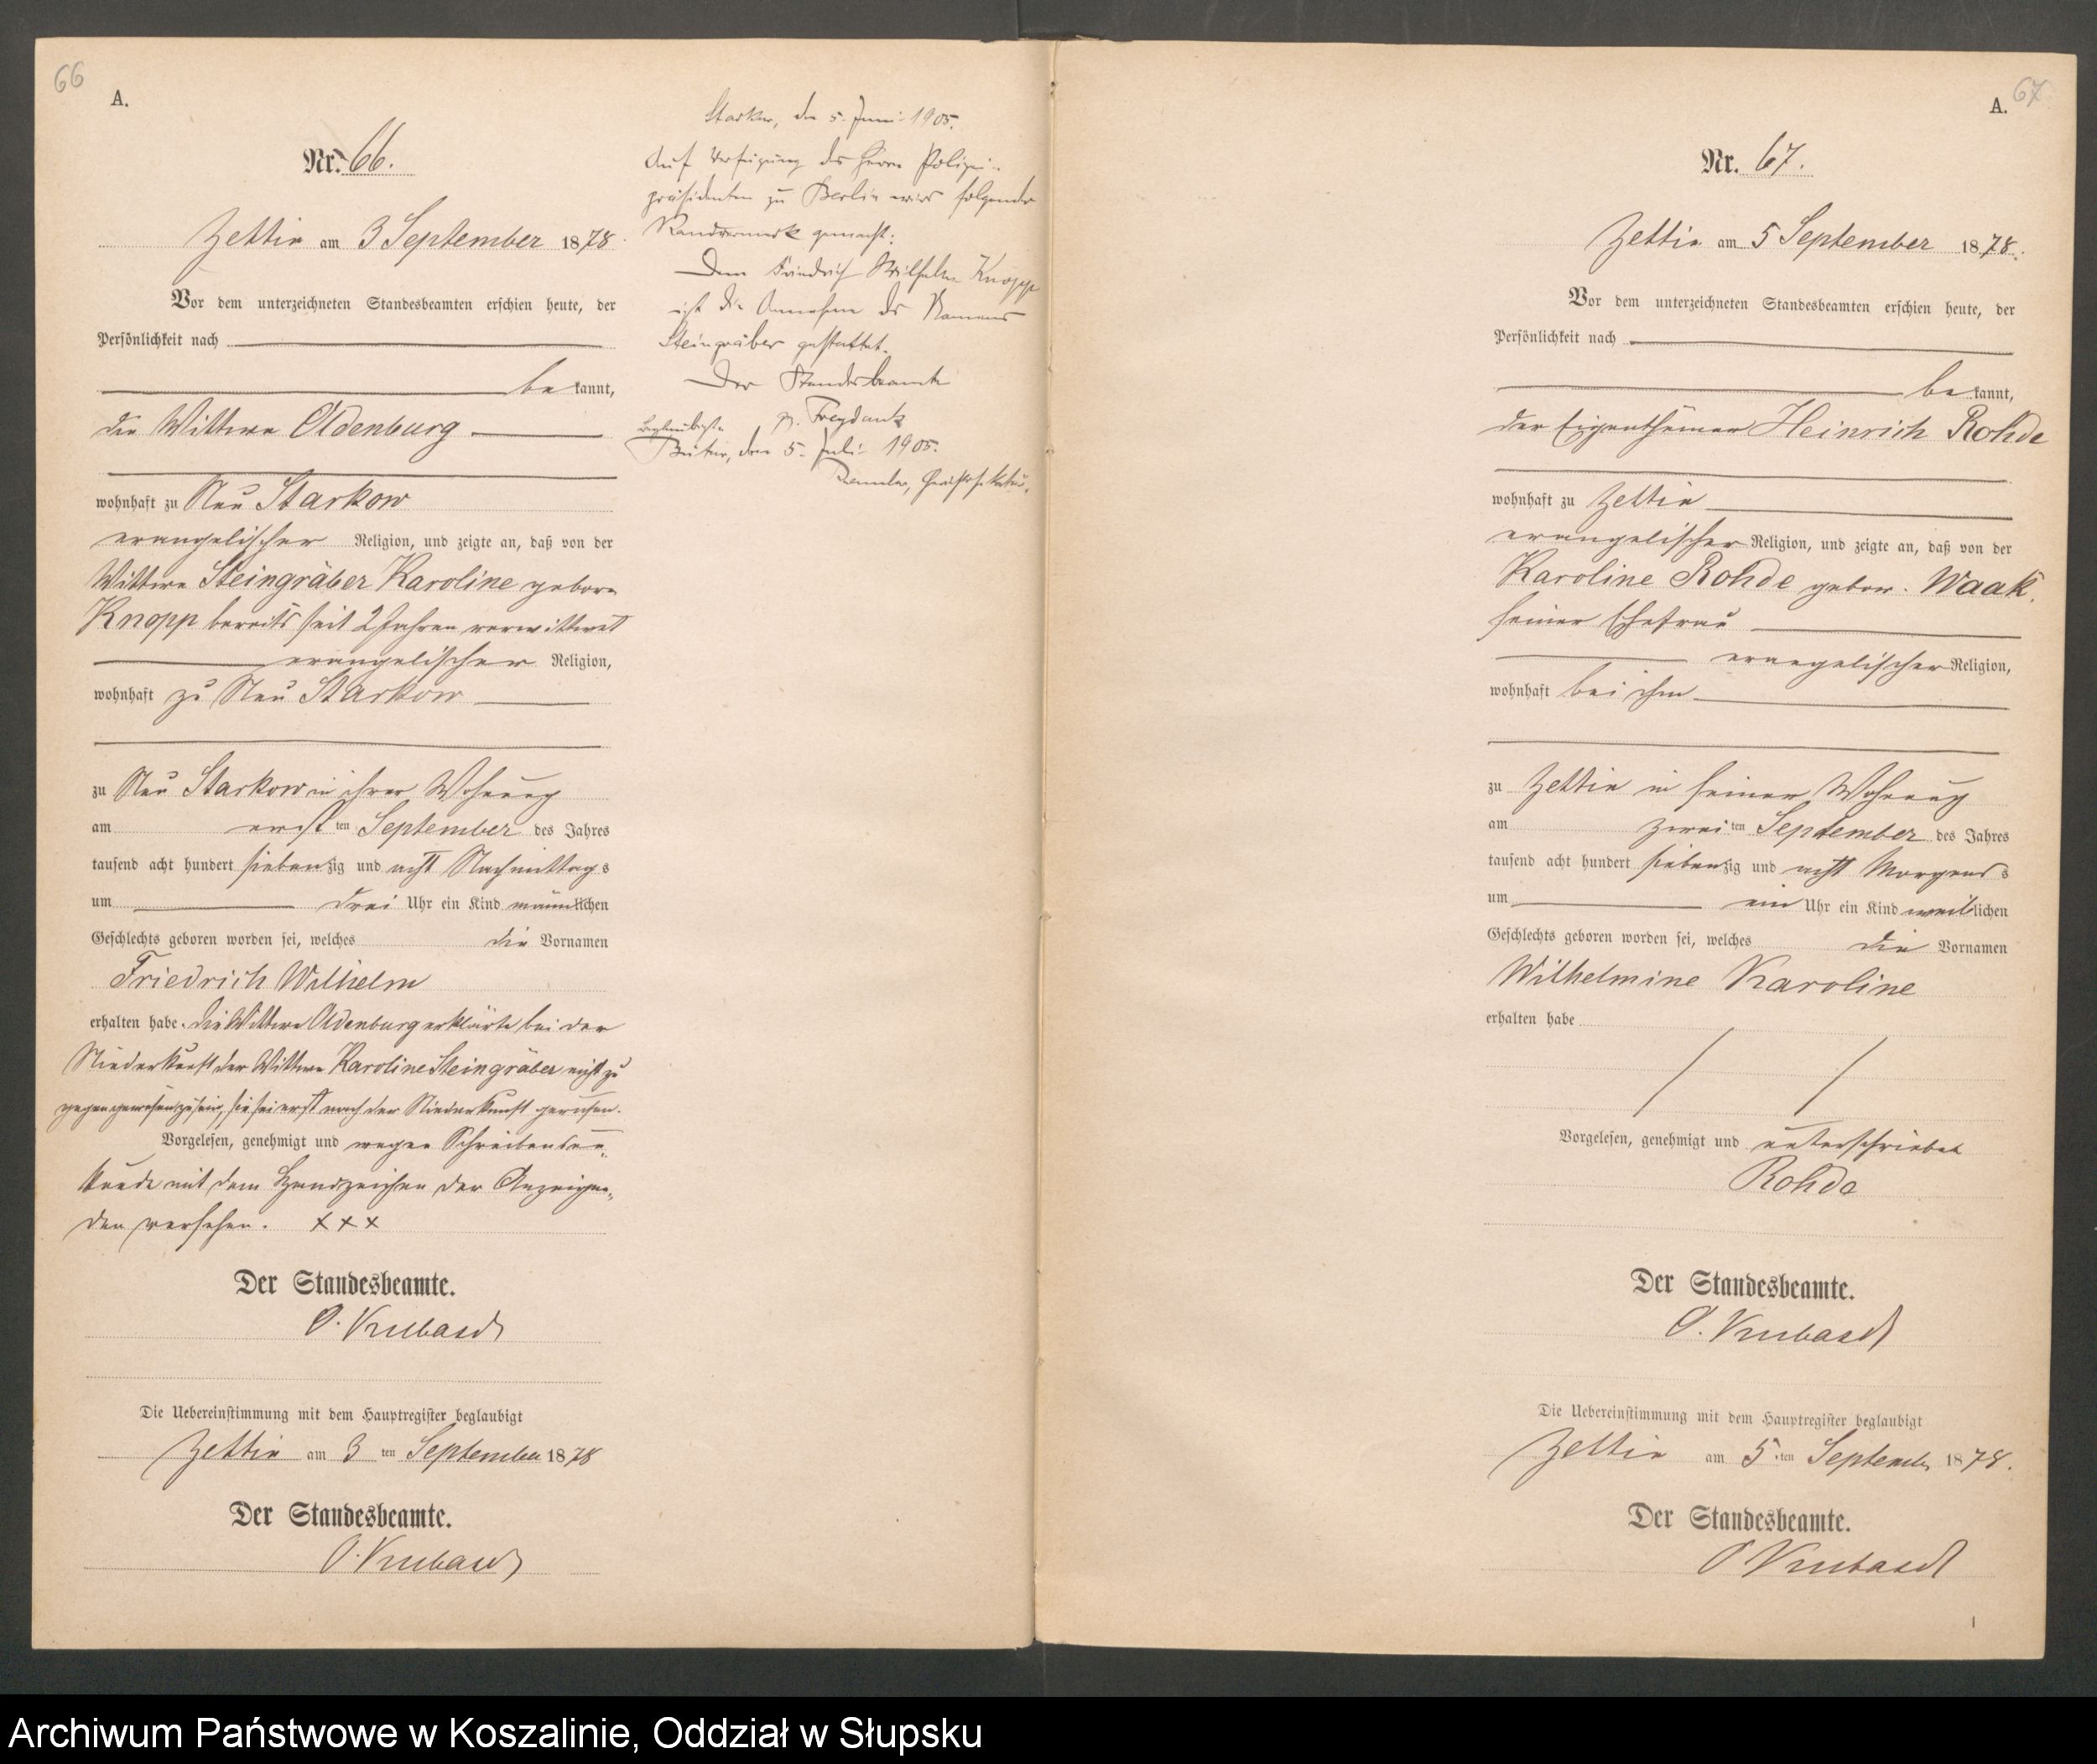 66
A.
Nr. 66.
Zettin am 3 September 1878.
Vor dem unterzeichneten Standesbeamten erschien heute, der
Persönlichkeit nach
be kannt,
die Wittwe Oldenburg
wohnhaft zu Neu Starkow
evangelischer Religion, und zeigte an, daß von der
Wittwe Steingräber Karoline geborn
Knopp bereits seit 2 Jahren verwittwet
evangelischer Religion,
wohnhaft zu Neu Starkow
zu Neu Starkow in ihrer Wohnung
am ersten September des Jahres
tausend acht hundert siebenzig und acht Nachmittags
um drei Uhr ein Kind männlichen
Geschlechts geboren worden sei, welches die Vornamen
Friedrich Wilhelm
erhalten habe. Die Wittwe Oldenburg erklärte bei der
Niederkunft der Wittwe Karoline Steingräber nicht zu
gegen gewesen zu sein, sie sei erst nach der Niederkunft gerufen.
Vorgelesen, genehmigt und wegen Schreibensun-
kunde mit dem Handzeichen der Anzeigen-
den versehen. x x x
Der Standesbeamte.
Die Uebereinstimmung mit dem Hauptregister beglaubigt
Zettin am 3 ten September 1878
Der Standesbeamte.
Starkow, den 5. Juni 1905.
Auf Verfügung des Herrn Polizei-
präsidenten zu Berlin wird folgender
Randvermerk gemacht:
Dem Friedrich Wilhelm Knopp
ist die Annahme des Namens
Steingräber gestattet.
Der Standesbeamte
gz. Freydank
Beglaubigt.
Bütow, den 5. Juli 1905.
Gerichtssekretär.
67
A.
Nr. 67.
Zettin am 5 September 1878.
Vor dem unterzeichneten Standesbeamten erschien heute, der
Persönlichkeit nach
be kannt,
der Eigenthümer Heinrich Rohde
wohnhaft zu Zettin
evangelischer Religion, und zeigte an, daß von der
Karoline Rohde gebor. Waak.
seiner Ehefrau
evangelischer Religion,
wohnhaft bei ihm
zu Zettin in seiner Wohnung
am zweiten September des Jahres
tausend acht hundert siebenzig und acht Morgens
um ein Uhr ein Kind weiblichen
Geschlechts geboren worden sei, welches die Vornamen
Wilhelmine Karoline
erhalten habe
Vorgelesen, genehmigt und unterschrieben
Rohde
Der Standesbeamte.
Die Uebereinstimmung mit dem Hauptregister beglaubigt
Zettin am 5 ten September 1878.
Der Standesbeamte.
Archiwum Państwowe w Koszalinie, Oddział w Słupsku